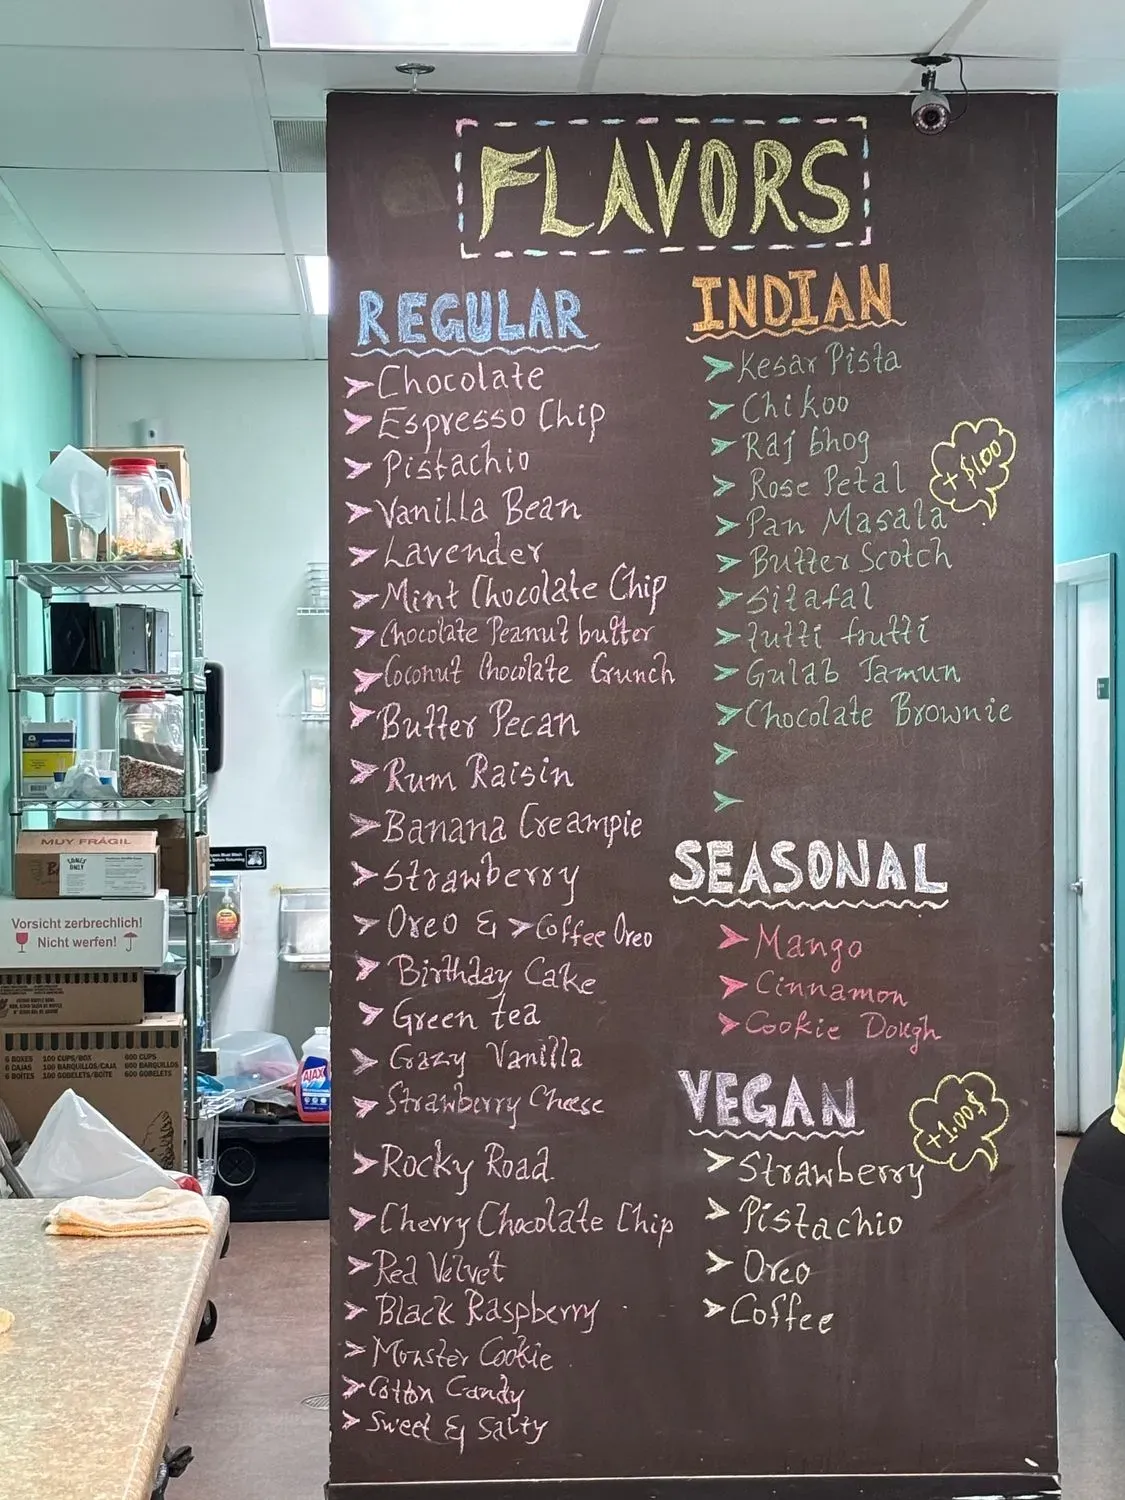 FLAVORS
REGULAR
Chocolate
Espresso Chip
Pistachio
Vanilla Bean
Lavender
Mint Chocolate Chip
Chocolate Peanut butter
Coconut Chocolate Crunch
Butter Pecan
Rum Raisin
Banana Creampie
Strawberry
Oreo & Coffee Oreo
Birthday Cake
Green tea
Crazy Vanilla
Strawberry Cheese
Rocky Road
Cherry Chocolate Chip
Red Velvet
Black Raspberry
Monster Cookie
Cotton Candy
Sweet & Salty
INDIAN
Kesar Pista
Chikoo
Raj bhog
Rose Petal
+ $1.00
Pan Masala
Butter Scotch
Sitafal
Tutti frutti
Gulab Jamun
Chocolate Brownie
SEASONAL
Mango
Cinnamon
Cookie Dough
VEGAN
+1.00$
Strawberry
Pistachio
Oreo
Coffee
MUY FRÁGIL
Vorsicht zerbrechlich!
Nicht werfen!
6 BOXES 100 CUPS/BOX 600 CUPS
6 CAJAS 100 BARQUILLOS/CAJA 600 BARQUILLOS
6 BOÎTES 100 GOBELETS/BOÎTE 600 GOBELETS
AJAX